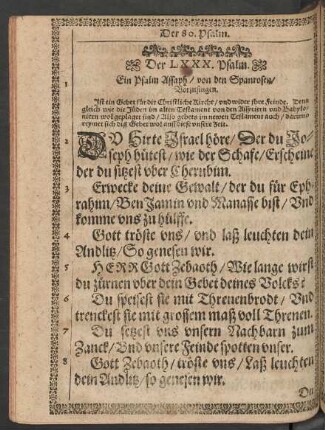 Der 80. Psalm.
Der LXXX. Psalm.
1 Ein Psalm Assaph / von den Spanrosen /
Vorzusingen.
Ist ein Gebet für die Christliche Kirche / vnd wider jhre Feinde. Denn
gleich wie die Jüden im alten Testament von den Assyrern vnd Babylo-
niern wol geplaget sind / Also gehets im newen Testament auch / darumb
reymet sich diß Gebet wol auff diese vnsere Zeit.
2 DV Hirte Israel höre / Der du Jo-
seph hütest / wie der Schafe / Erscheine
der du sitzest vber Cherubim.
3 Erwecke deine Gewalt / der du für Eph-
rahim / Ben Jamin vnd Manasse bist / Vnd
komme vns zu hülffe.
4 Gott tröste vns / vnd laß leuchten dein
Andlitz / So genesen wir.
5 HERR Gott Zebaoth / Wie lange wirst
du zürnen vber dem Gebet deines Volcks?
6 Du speisest sie mit Threnenbrodt / Vnd
trenckest sie mit grossem maß voll Threnen.
7 Du setzest vns vnsern Nachbarn zum
Zanck / Vnd vnsere Feinde spotten vnser.
8 Gott Zebaoth / tröste vns / Laß leuchten
dein Andlitz / so genesen wir.
Du